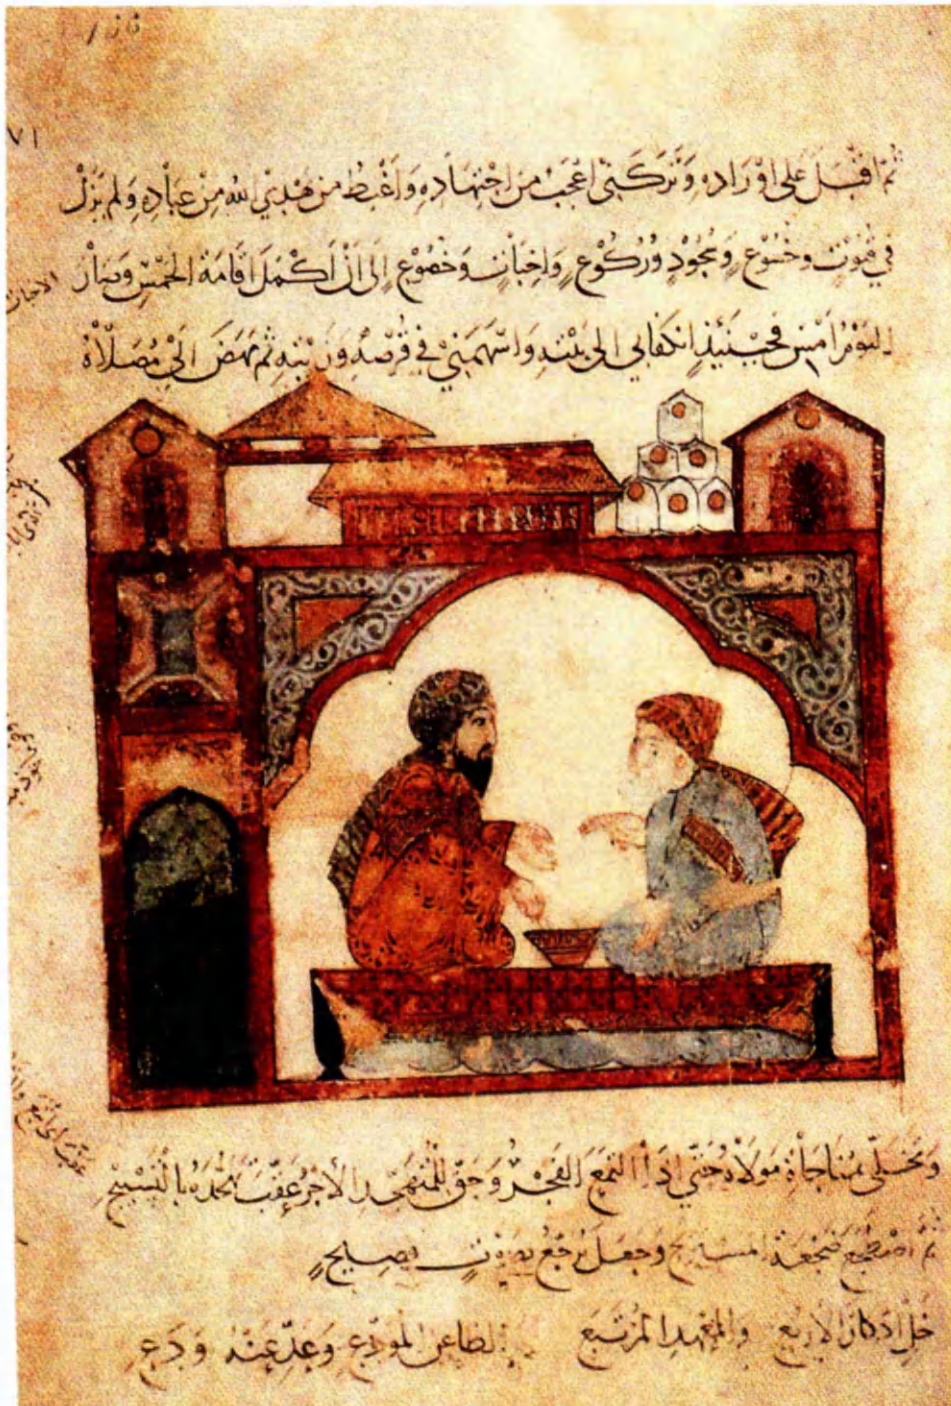 ثُمَّ اقْبَلَ عَلَى اَوْرَادِهِ وَتَرَكَنِي اَعْجَبُ مِنِ اجْتِهَادِهِ وَاَغْبِطُ مَنْ يَهْدِي اللهُ مِنْ عِبَادِهِ وَلَمْ يَزَلْ
فِي قُنُوْتٍ وَخُشُوْعٍ وَسُجُوْدٍ وَرُكُوْعٍ وَاِخْبَاتٍ وَخُضُوْعٍ اِلَى اَنْ اَكْمَلَ اِقَامَةَ الْخَمْسِ وَصَارَ
الاخبات
اليَوْمُ اَمْسِ فَحِيْنَئِذٍ انْكَفَا بِي اِلَى بَيْتِهِ وَاَسْهَمَنِيْ فِي قُرْصِهِ وَزَيْتِهِ ثُمَّ نَهَضَ اِلَى مُصَلَّاهُ
وَتَخَلَّى بِمُنَاجَاةِ مَوْلَاهُ حَتَّى اِذَا الْتَمَعَ الفَجْرُ وَحَقَّ لِلْمُتَهَجِّدِ الاَجْرُ عَقَّبَ تَهَجُّدَهُ بِالتَّسْبِيْحِ
ثُمَّ اضْطَجَعَ ضَجْعَةَ المُسْتَرِيْحِ وَجَعَلَ يُرَجِّعُ بِصَوْتٍ فَصِيْحٍ
خَلِّ ادِّكَارَ الاَرْبُعِ وَالمَعْهَدِ المُرْتَبَعِ وَالظَّاعِنِ المُوَدِّعِ وَعَدِّ عَنْهُ وَدَعِ